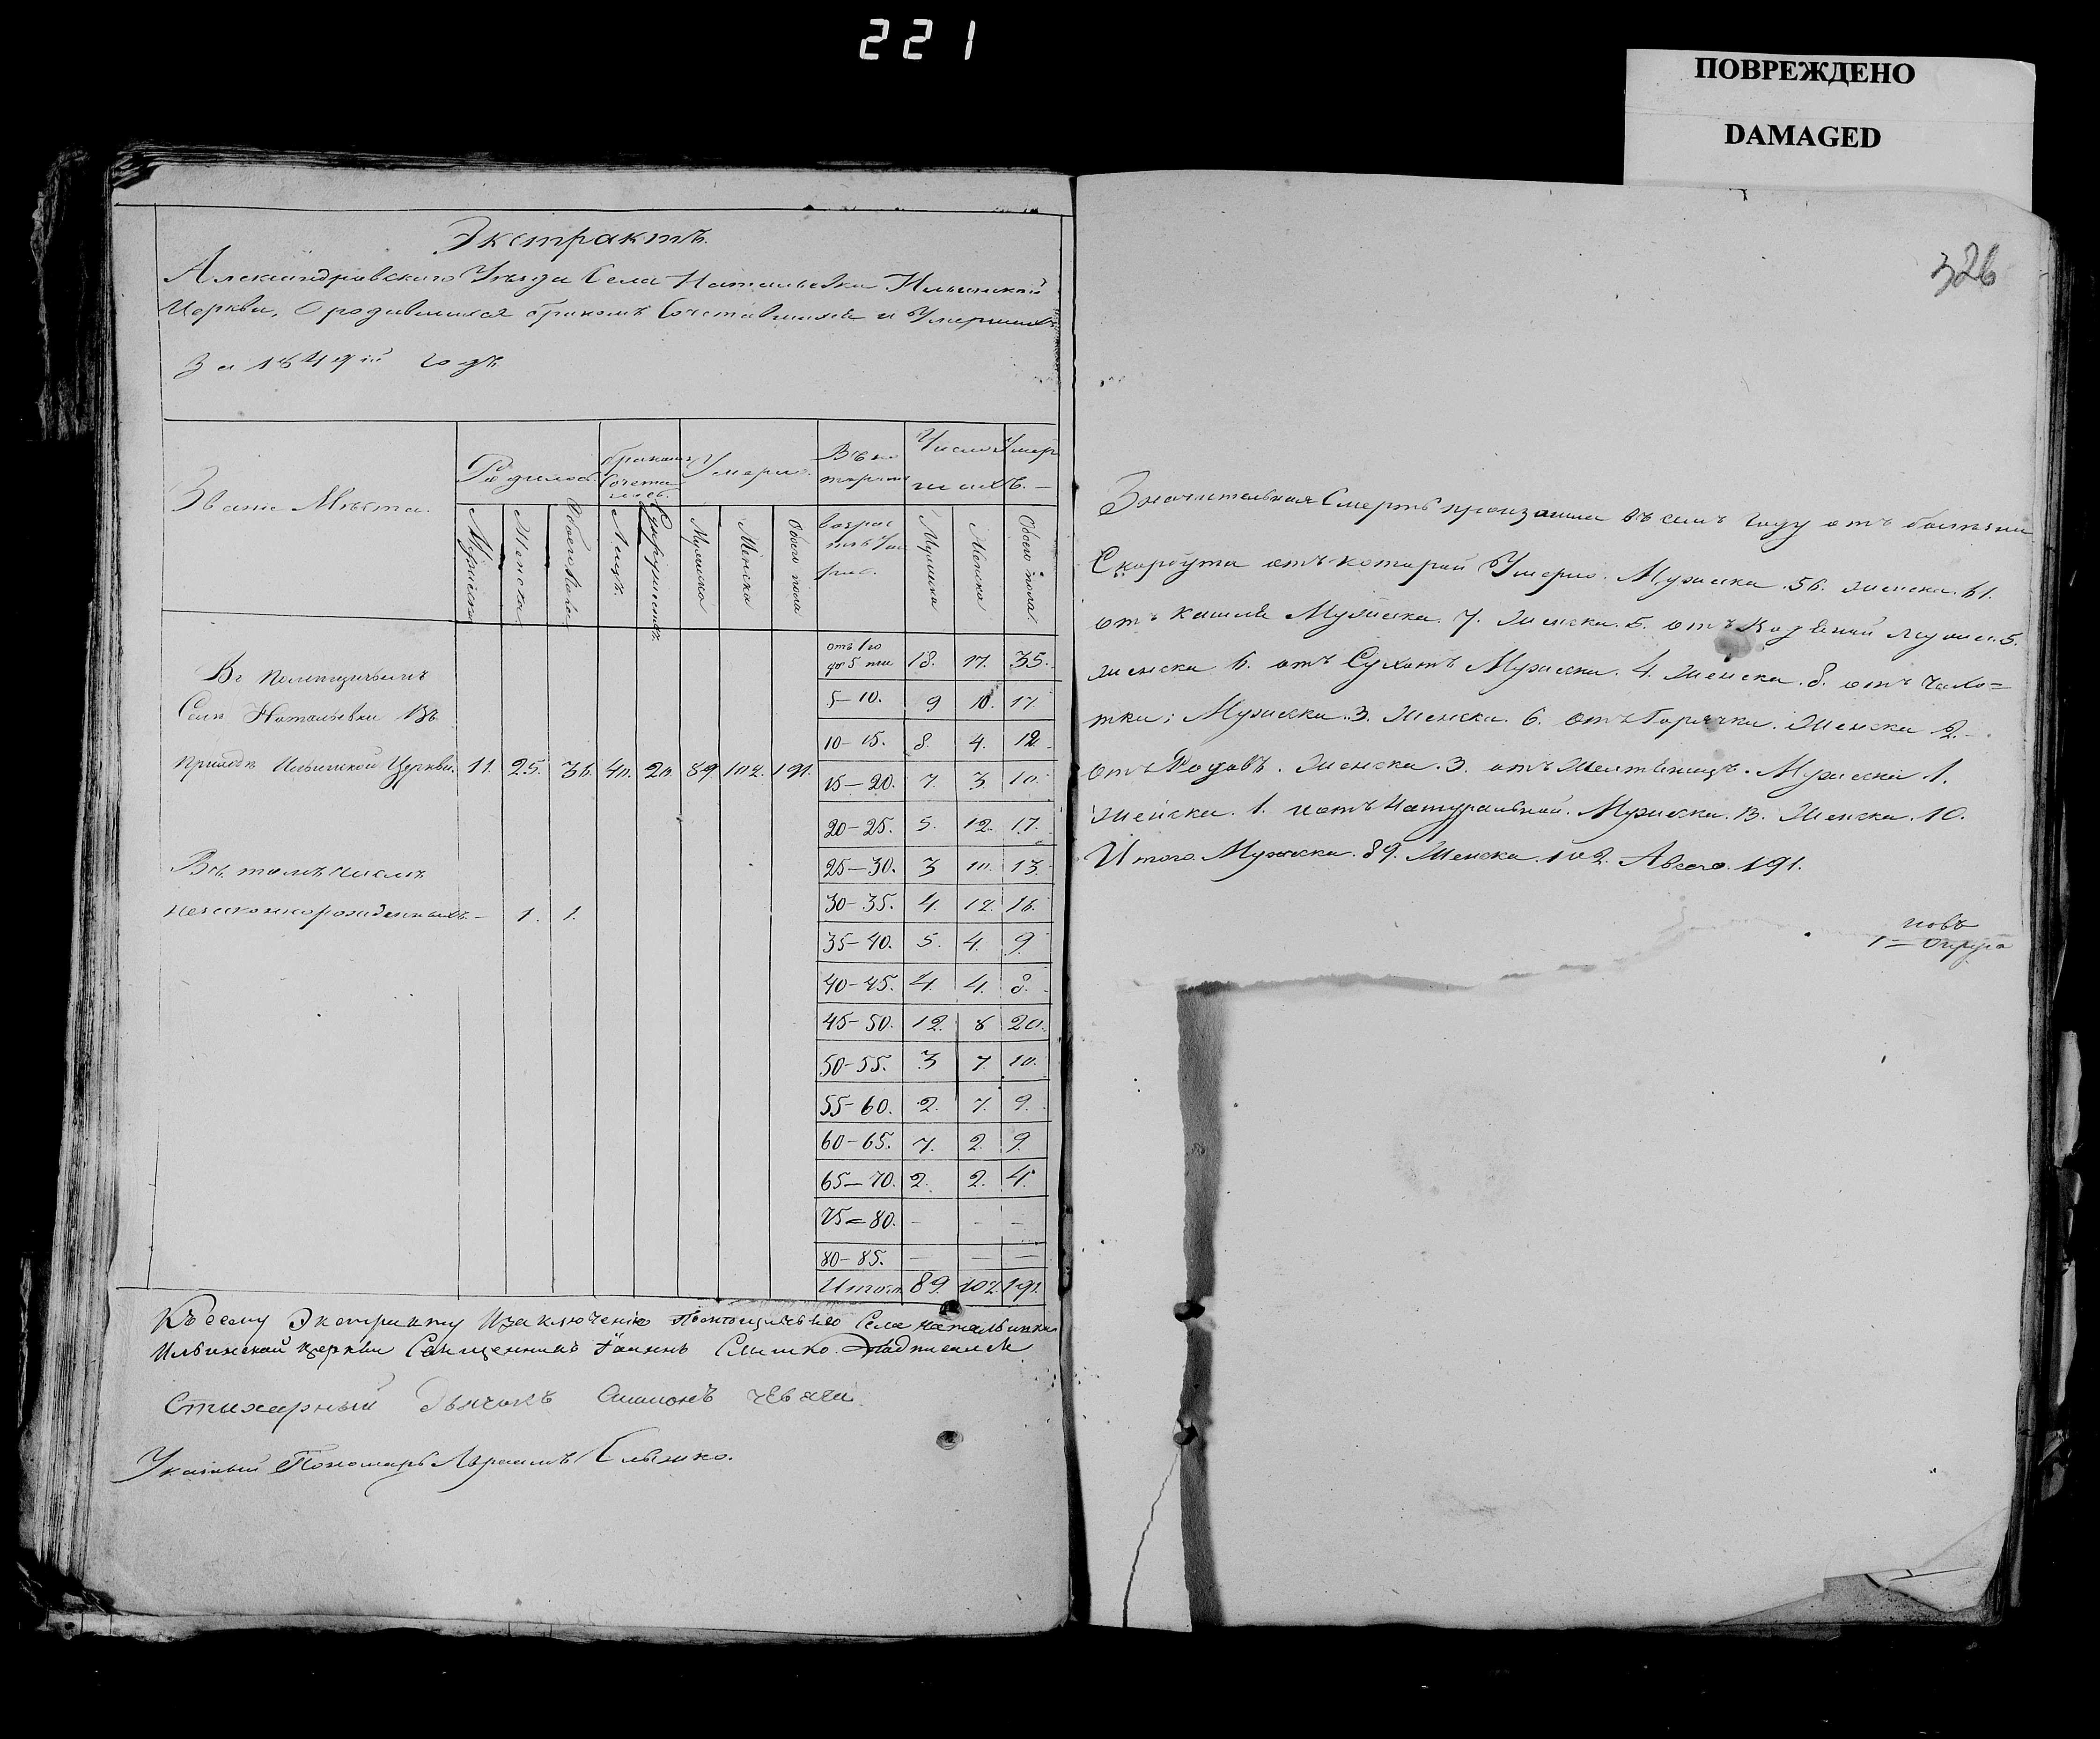 221
ПОВРЕЖДЕНО
DAMAGED
326
Экстрактъ.
Александровского Уезда Села Натальевки Ильинской
Церкви, О родившихся браком Сочетавшихся и Умершихъ
За 1849й годъ.
Звание Места.
Родилось.
браком Сочеталось.
Умерло.
Въ котором возрасте Умерли.
Число Умерших.
Мужеска
Женска
Обоего Пола
Лицъ.
Супружествъ.
Мужеска
Женска
Обоего пола
Мужеска
Женска
Обоего пола
Въ помещичьемъ
Селе Натальевки Въ
приходе Ильинской Церкви. 11. 25. 36. 40. 20. 89. 102. 191.
Въ томъ числе
незаконнорожденныхъ – 1. 1.
отъ 1го до 5 ти 18. 17. 35.
5–10. 9 10. 17.
10–15. 8. 4. 12.
15–20. 7. 3. 10.
20–25. 5. 12. 17.
25–30. 3 10. 13.
30–35. 4. 12. 16.
35–40. 5. 4. 9.
40–45. 4. 4. 8.
45–50. 12. 8 20.
50–55. 3 7. 10.
55–60. 2. 7. 9.
60–65. 7. 2. 9.
65–70. 2. 2. 4.
75=80. – – –
80–85. – – –
Итого. 89. 102. 191.
Къ сему Экстракту И заключению Помещичьего Села Натальевки
Ильинской церкви Священникъ Іоаннъ Слишко Подписался
Стихарный Дьячокъ Симионъ
Указный Пономарь Авраамъ Слишко.
Значительная Смерть произошла въ семъ году отъ болезни
Скорбута отъ которой Умерло. Мужеска. 56. женска. 61.
отъ кашля Мужеска. 7. Женска. 5. отъ Водяной Мужес. 5.
женска 6. отъ Сухотъ Мужеска. 4. Женска. 8. отъ Чахо=
тки: Мужеска. 3. Женска. 6. отъ Горячки. Женска 2.
отъ Родовъ. Женска. 3. отъ Желтеницъ. Мужеска 1.
Женска. 1. и отъ Натуральной. Мужеска. 13. Женска. 10.
Итого. Мужеска. 89. Женска. 102. А всего. 191.
новъ
1= Округа